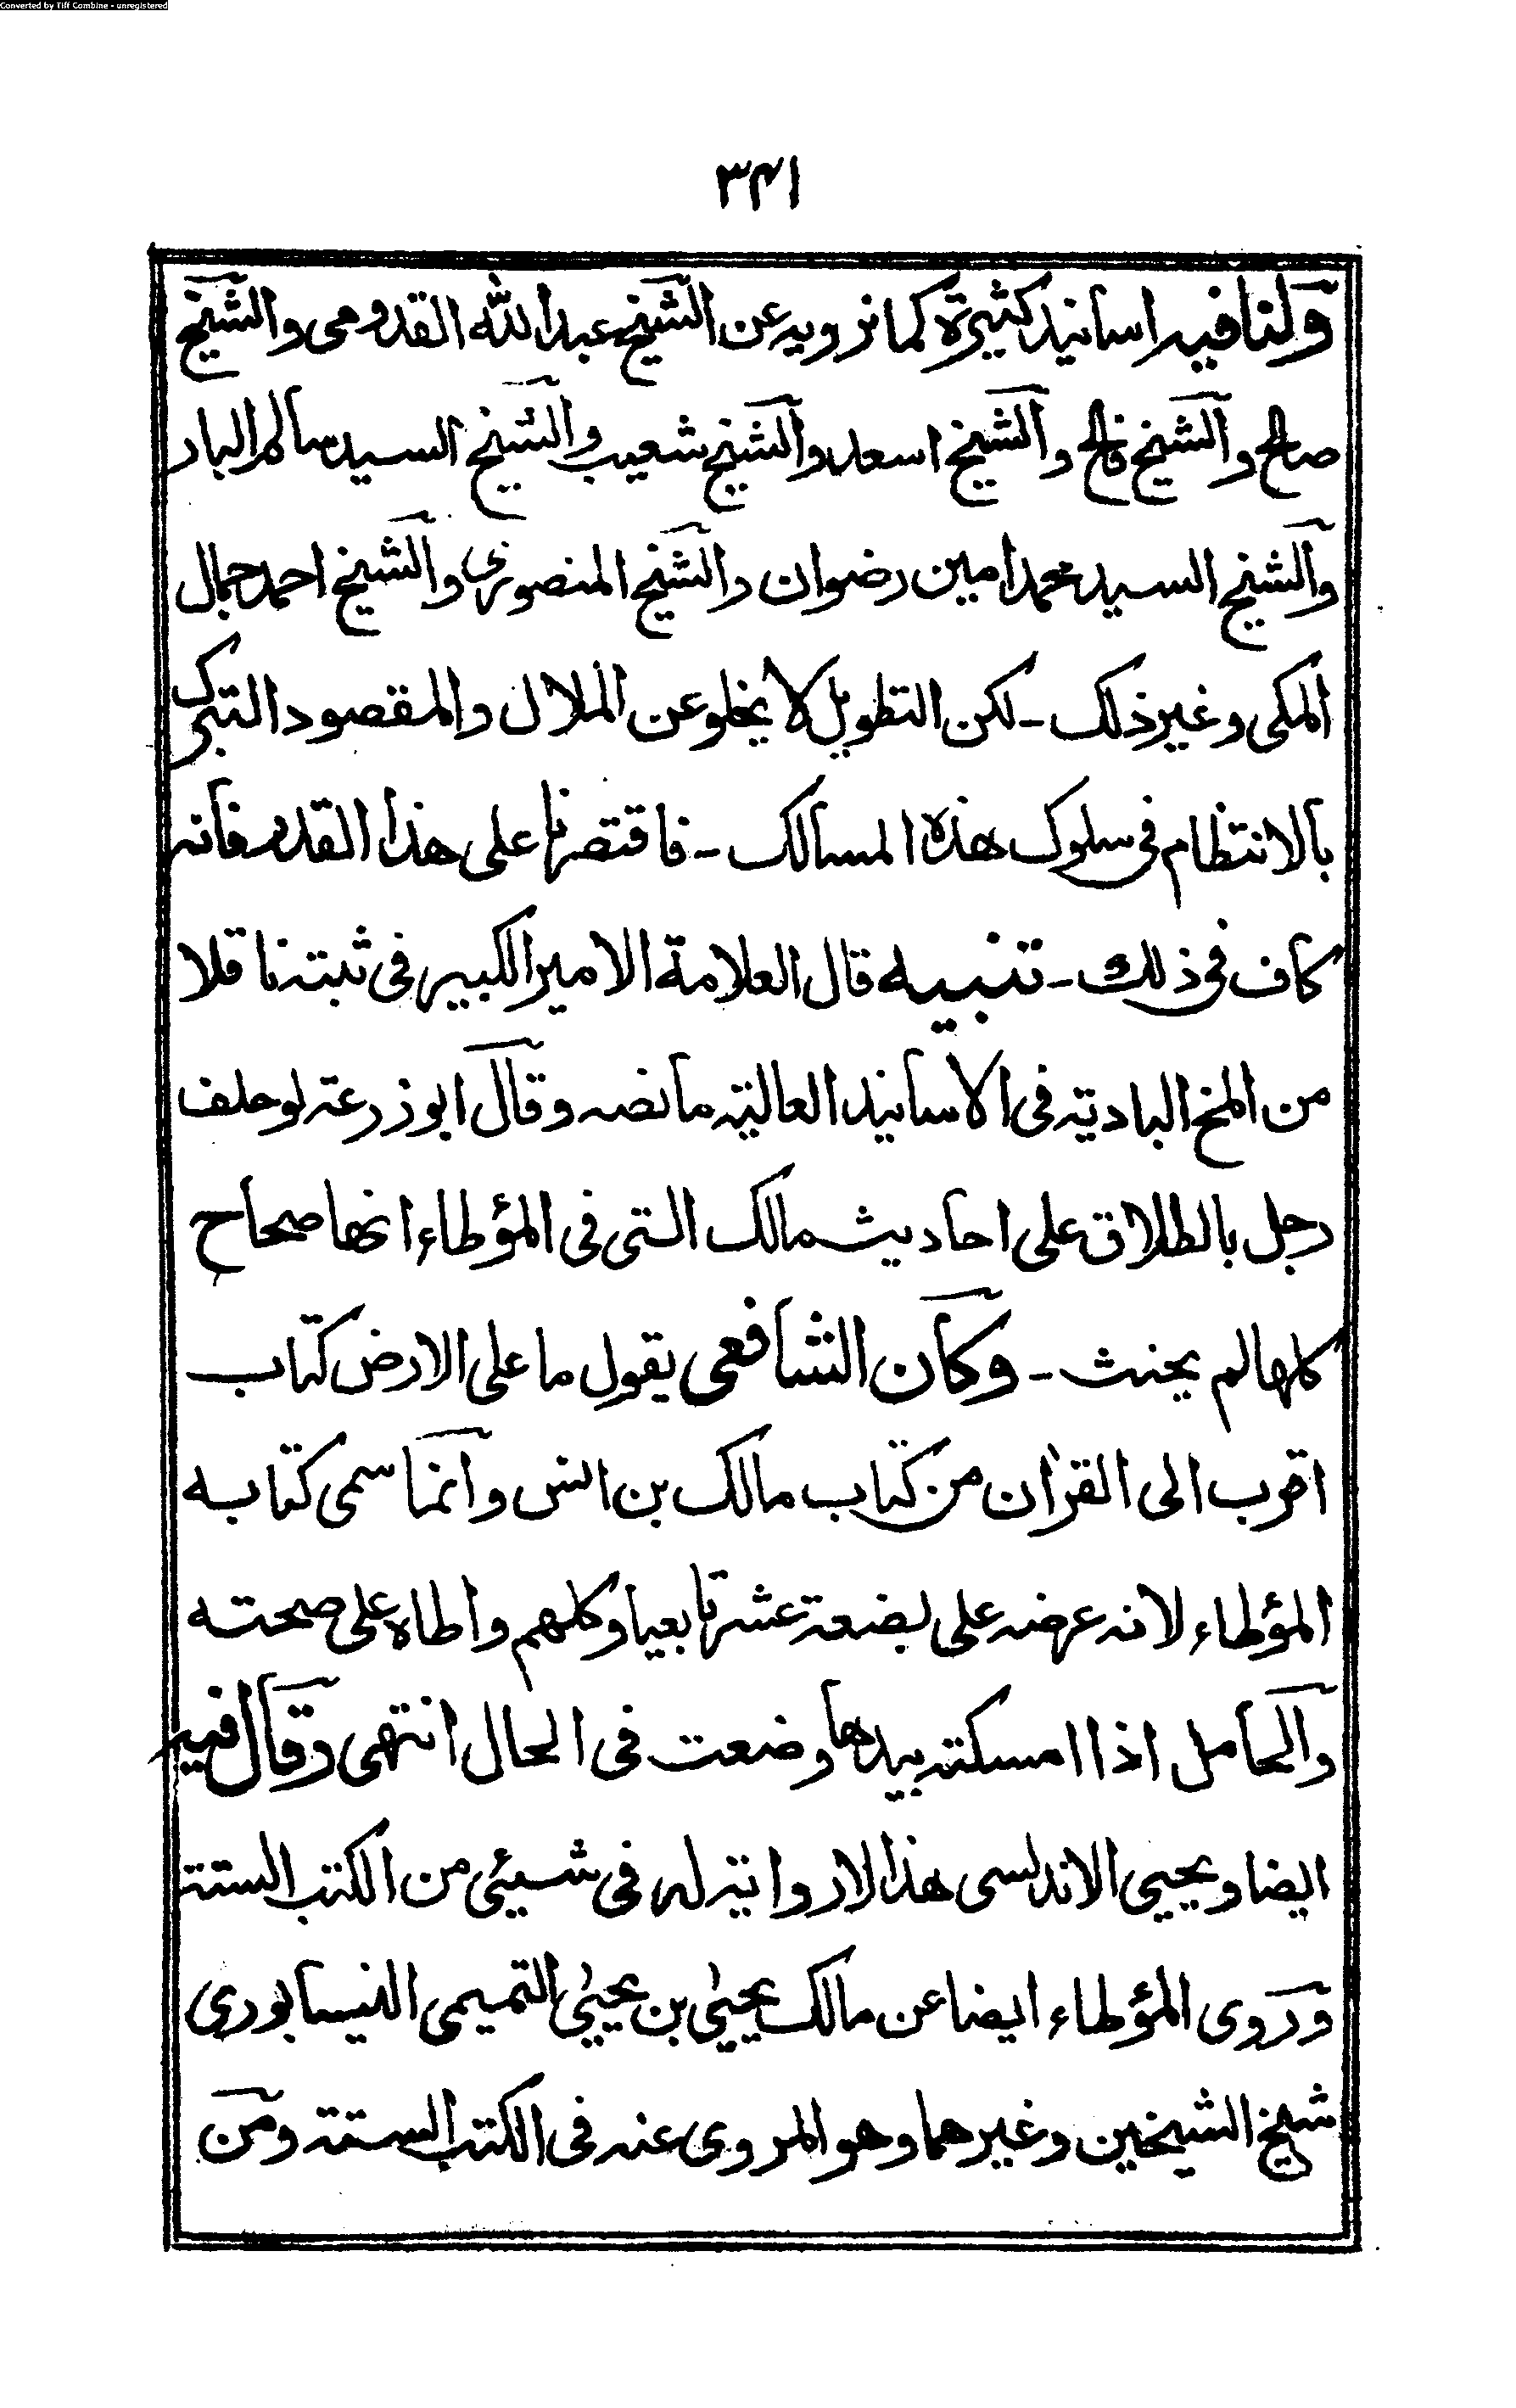 Converted by Tiff Combine - unregistered
۳۴۱
ولنا فيه اسانيد كثيرة كما نرويه عن الشيخ عبد الله القدومى والشيخ
صالح والشيخ فالح والشيخ اسعد والشيخ شعيب والشيخ السيد سالم البار
والشيخ السيد محمد امين رضوان والشيخ المنصورى والشيخ احمد جمال
المكى وغير ذلك - لكن التطويل لا يخلو عن الملال والمقصود التبرك
بالانتظام فى سلوك هذه المسالك - فاقتصرنا على هذا القدر فانه
كاف فى ذلك - تنبيه قال العلامة الامير الكبير فى ثبته ناقلا
من المنح البادية فى الاسانيد العالية ما نصه وقال ابو زرعة لو حلف
رجل بالطلاق على احاديث مالك التى فى المؤطاء انها صحاح
كلها لم يحنث - وكان الشافعى يقول ما على الارض كتاب
اقرب الى القرآن من كتاب مالك بن انس وانما سمى كتابه
المؤطاء لانه عرضه على بضعة عشر تابعيا وكلهم واطاه على صحته
والحامل اذا امسكته بيدها وضعت فى الحال انتهى وقال فيه
ايضا ويحيى الاندلسى هذا لا رواية له فى شيئى من الكتب الستة
وروى المؤطاء ايضا عن مالك يحيىٰ بن يحيىٰ التميمى النيسابورى
شيخ الشيخين وغيرهما وهو المروى عنه فى الكتب الستة ومن